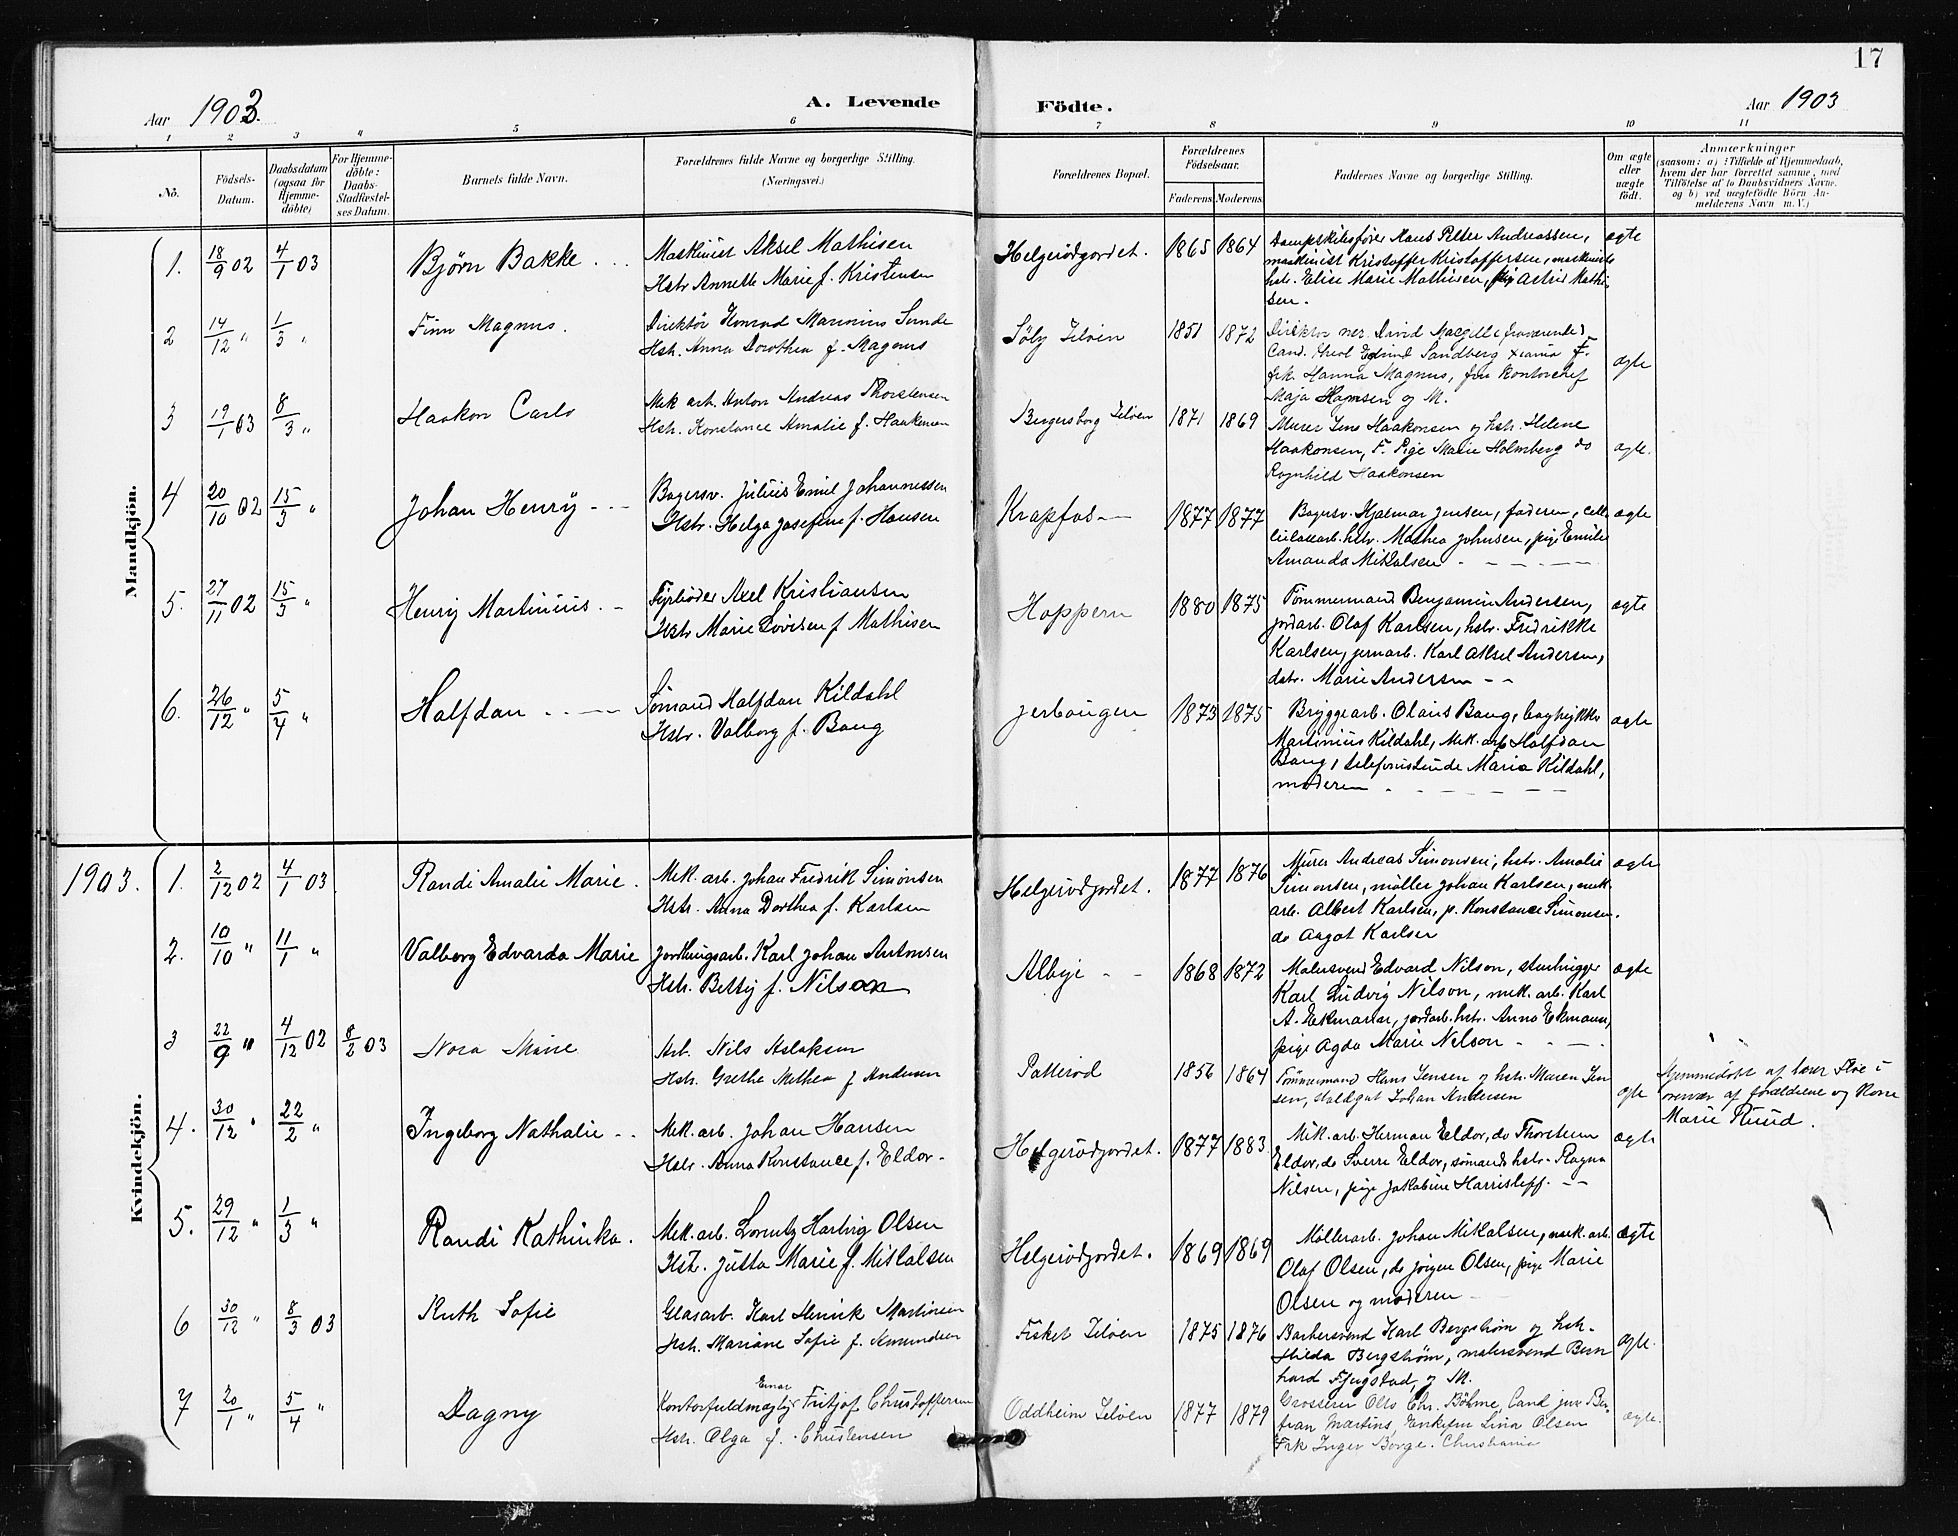 17
Aar 1903.
A. Levende
Födte.
Aar 1903
1 2 3 4 5 6 7 8 9 10 11
No.
Födsels-
Datum.
Daabsdatum
(ogsaa for
Hjemme-
döbte)
For Hjemme-
döbte:
Daabs-
Stadfæstel-
ses Datum.
Barnets fulde Navn.
Forældrenes fulde Navne og borgerlige Stilling.
(Næringsvei.)
Forældrenes Bopæl.
Forældrenes
Födselsaar.
Faderens.
Moderens.
Faddernes Navne og borgerlige Stilling.
Om ægte
eller
uægte
födt.
Anmærkninger
(saasom: a) i Tilfælde af Hjemmedaab,
hvem der har forrettet samme, med
Tilföielse af to Daabsvidners Navne.
og b) ved uægtefödte Börn An-
melderens Navn m. V.)
Mandkjön.
1. 18/9 02 4/1 03 Björn Bakke
Maskinist Aksel Mathisen
Hstr Annette Marie f. Kristensen
Helgerödgordet. 1865 1864
Dampskibsförer Hans Petter Andreassen,
maskinist Kristoffer Kristoffersen, maskinists
hstr. Elise Marie Mathisen, pige Astrid Mathi-
sen.
ægte
2 14/12 " 1/3 " Finn Magnus.
Direktör Konrad Marinius Sunde
Hstr. Anna Dorothea f. Magnus
Söly Jelöen 1851 1872
Direktör David (fraværende)
Cand. theol Sandberg Xania F.
frk. Hanna Magnus, fru Kontorchef
Maja Hamsen og M.
ægte
3 19/1 03 8/3 " Haakon Carlo
Mek arb. Anton Andreas Thorstensen
Hstr. Konstance Amalie f. Haakensen
Bergersborg Jelöen 1871 1869
Murer Jens Haakonsen og hstr. Helene
Haakonsen, F. Pige Marie Holmberg do
Ragnhild Haakonsen
ægte.
4 20/10 02 15/3 " Johan Henry
Bagersv. Julius Emil Johannessen
Hstr. Helga Josefine f. Hansen
Krapfos 1877 1877
Bagersv. Hjalmar Jensen, faderen, cel-
lulosearb. hstr. Mathea Johnsen, pige Emilie
Amanda Mikalsen
ægte
5. 27/11 02 15/3 " Henry Martinius.
Fyrböder Axel Kristiansen
Hstr Marie Lovisen f Mathisen
Hoppern 1880 1875
Tömmermand Benjamin Andersen,
jordarb. Olaf Karlsen, hstr. Fredrikke
Karlsen, jernarb. Karl Aksel Andersen,
datr. Marie Andersen
ægte
6. 26/12 " 5/4 " Halfdan
Sömand Halfdan Kildahl
Hstr. Valborg f. Bang
Jerbaugen 1873 1875
Bryggearb. Olaus Bang,
Martinius Kildahl, Mek. arb Halfdan
Bang, telefonistinde Maria Kildahl,
moderen
ægte
1903.
Kvindekjön.
1. 2/12 02 4/1 03. Randi Amalie Marie.
Mek. arb. Johan Fredrik Simonsen
Hstr. Anna Dorthea f. Karlsen
Helgerödgordet. 1877 1876
Murer Andreas Simonsen, hstr. Amalie
Simonsen, möller Johan Karlsen, mek.
arb. Albert Karlsen, p. Konstance Simonsen.
do Aagot Karlsen
ægte
2. 10/10 " 11/1 " Valborg Edvarda Marie
Karl Johan Antonsen
Hstr. Betty f. Nilson
Albye 1868 1872
Malersvend Edvard Nilson, stenhugger
Karl Ludvig Nilson, mek. arb. Karl
A. Ekmann, jordarb. hstr. Anna Ekmann,
pige Agda Marie Nelson
ægte
3 22/9 " 4/12 02 8/2 03 Nora Marie
Arb. Nils Aslaksen
Hstr. Grethe Mathea f Andersen
Patteröd 1856 1864
Tömmermand Hans Jensen og hstr. Maren Jen
sen, Johan Andersen
ægte
Hjemmedöbt af lærer Floe i
overvær af forældrene og Kone
Marie Ruud.
4. 30/12 " 22/2 " Ingeborg Nathalie
Mek. arb. Johan Hansen
Hstr. Anna Konstance f. Eldor
Helgerödgordet. 1877 1883.
Mek. arb. Herman Eldor, do Thorstein
Eldor, do Sverre Eldor, sömands hstr. Ragna
Nilsen, pige Jakobine
ægte
5. 29/12 " 1/3 " Randi Kathinka.
Mek. arb. Lorentz Hartvig Olsen
Hstr. Jutta Marie f. Mikalsen
Helgerödgordet. 1869 1869
Möllerarb. Johan Mikalsen, mek. arb.
Olaf Olsen, do Jörgen Olsen, pige Marie
Olsen og moderen
ægte
6 30/12 " 8/3 03 Ruth Sofie
Glasarb. Karl Henrik Martinsen
Hstr. Mariane Sofie f. Amundsen
Fisket Jelöen 1875 1876
Barbersvend Karl Bergström og hstr.
Hilda Bergström, malersvend Bern
hard Fjugstad, og M.
ægte.
7 20/1 " 5/4 " Dagny
Einar
Kontorfuldmægtig Fritjof Christoffersen
Hstr. Olga f. Christensen
Oddheim Jelöen 1877 1879
Grosserer Chr. Böhme, Cand jur Ber-
tran Martins, Enkefru Lina Olsen
Frk Inger Borge. Christiania
ægte.